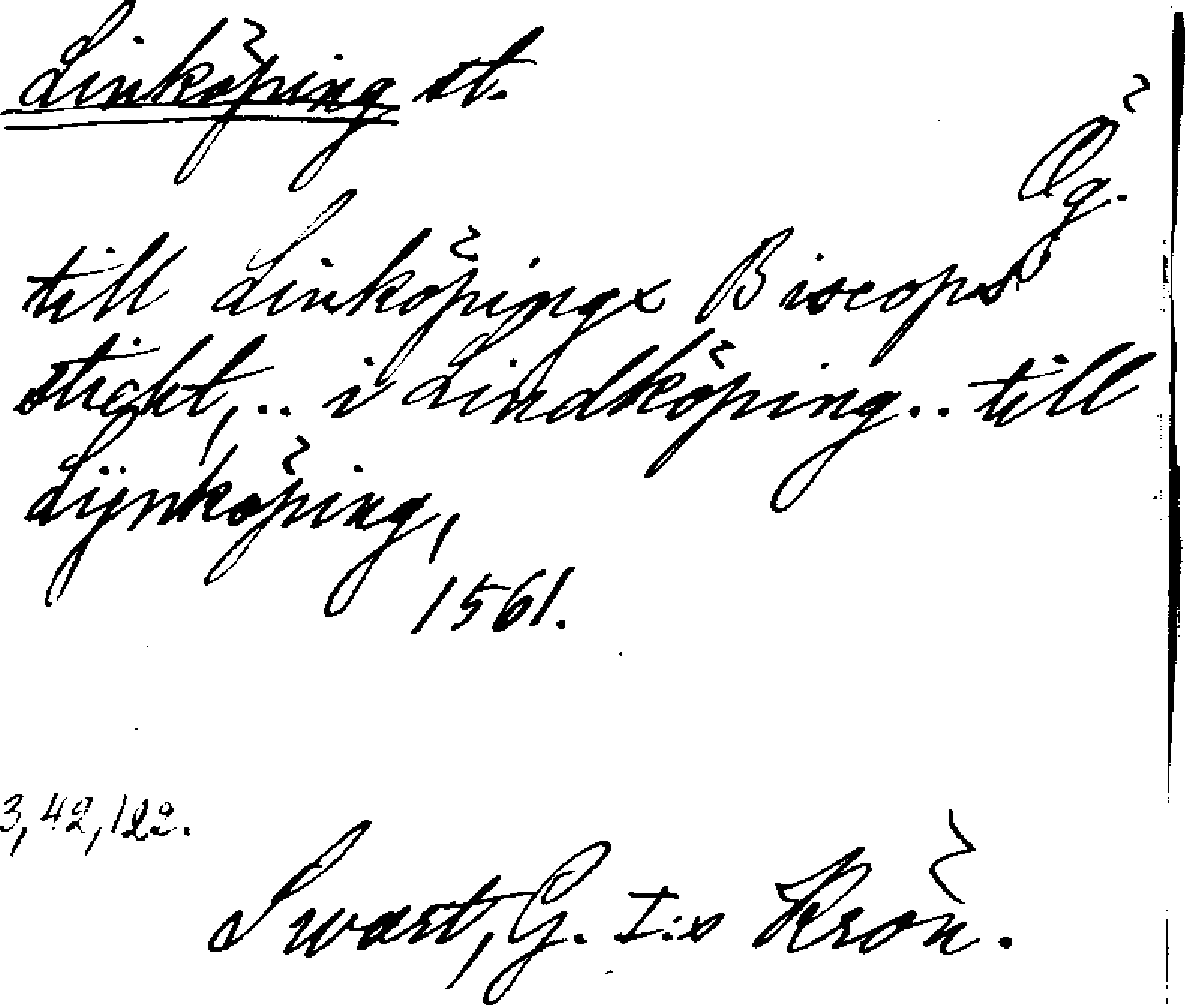 Linköping st.
Ög.
till Linköpings Biscops
stickt, .. i Lindköping .. till
Lijnköping,
1561.
3, 42, 122.
Swart, G. I:s Krön.